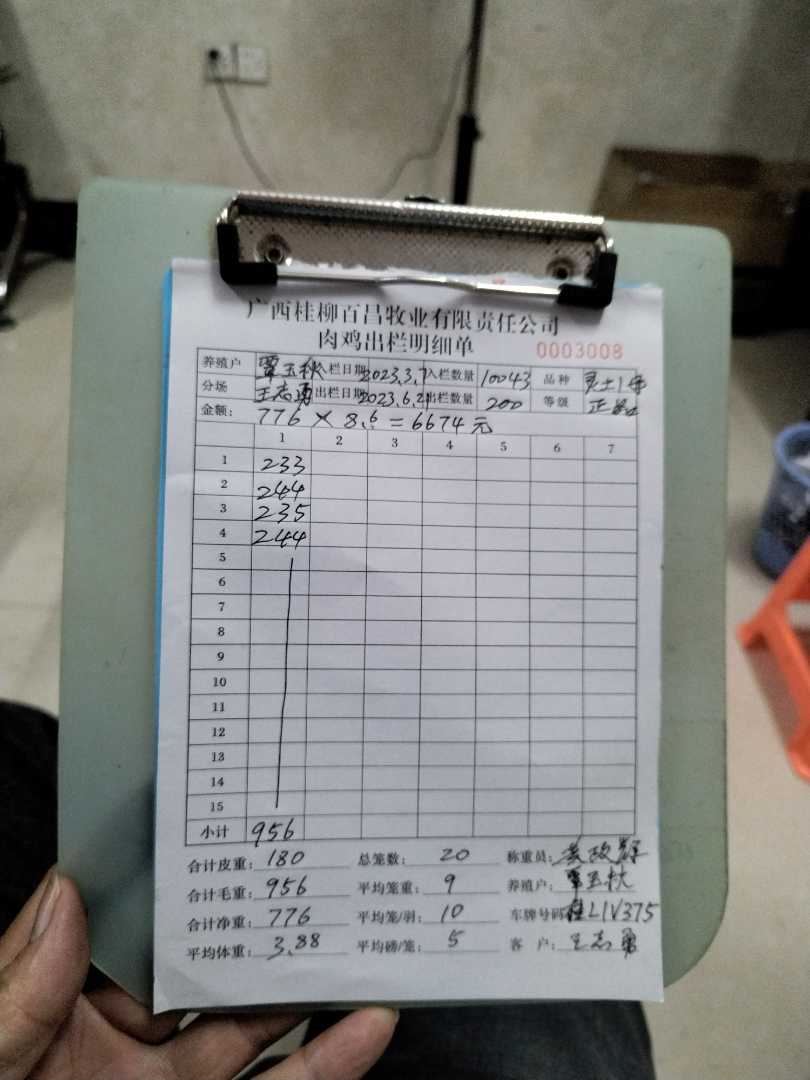 广西桂柳百昌牧业有限责任公司
肉鸡出栏明细单 0003008
养殖户 覃玉秋 入栏日期 2023.3.7 入栏数量 10043 品种 灵土1号
分场 王志勇 出栏日期 2023.6.21 出栏数量 200 等级 正品
金额: 776 × 8.6 = 6674元
1 2 3 4 5 6 7
1 233
2 244
3 235
4 244
5
6
7
8
9
10
11
12
13
14
15
小计 956
合计皮重: 180 总笼数: 20 称重员:
合计毛重: 956 平均笼重: 9 养殖户: 覃玉秋
合计净重: 776 平均笼/羽: 10 车牌号码 桂L1V375
平均体重: 3.88 平均磅/笼: 5 客户: 王志勇